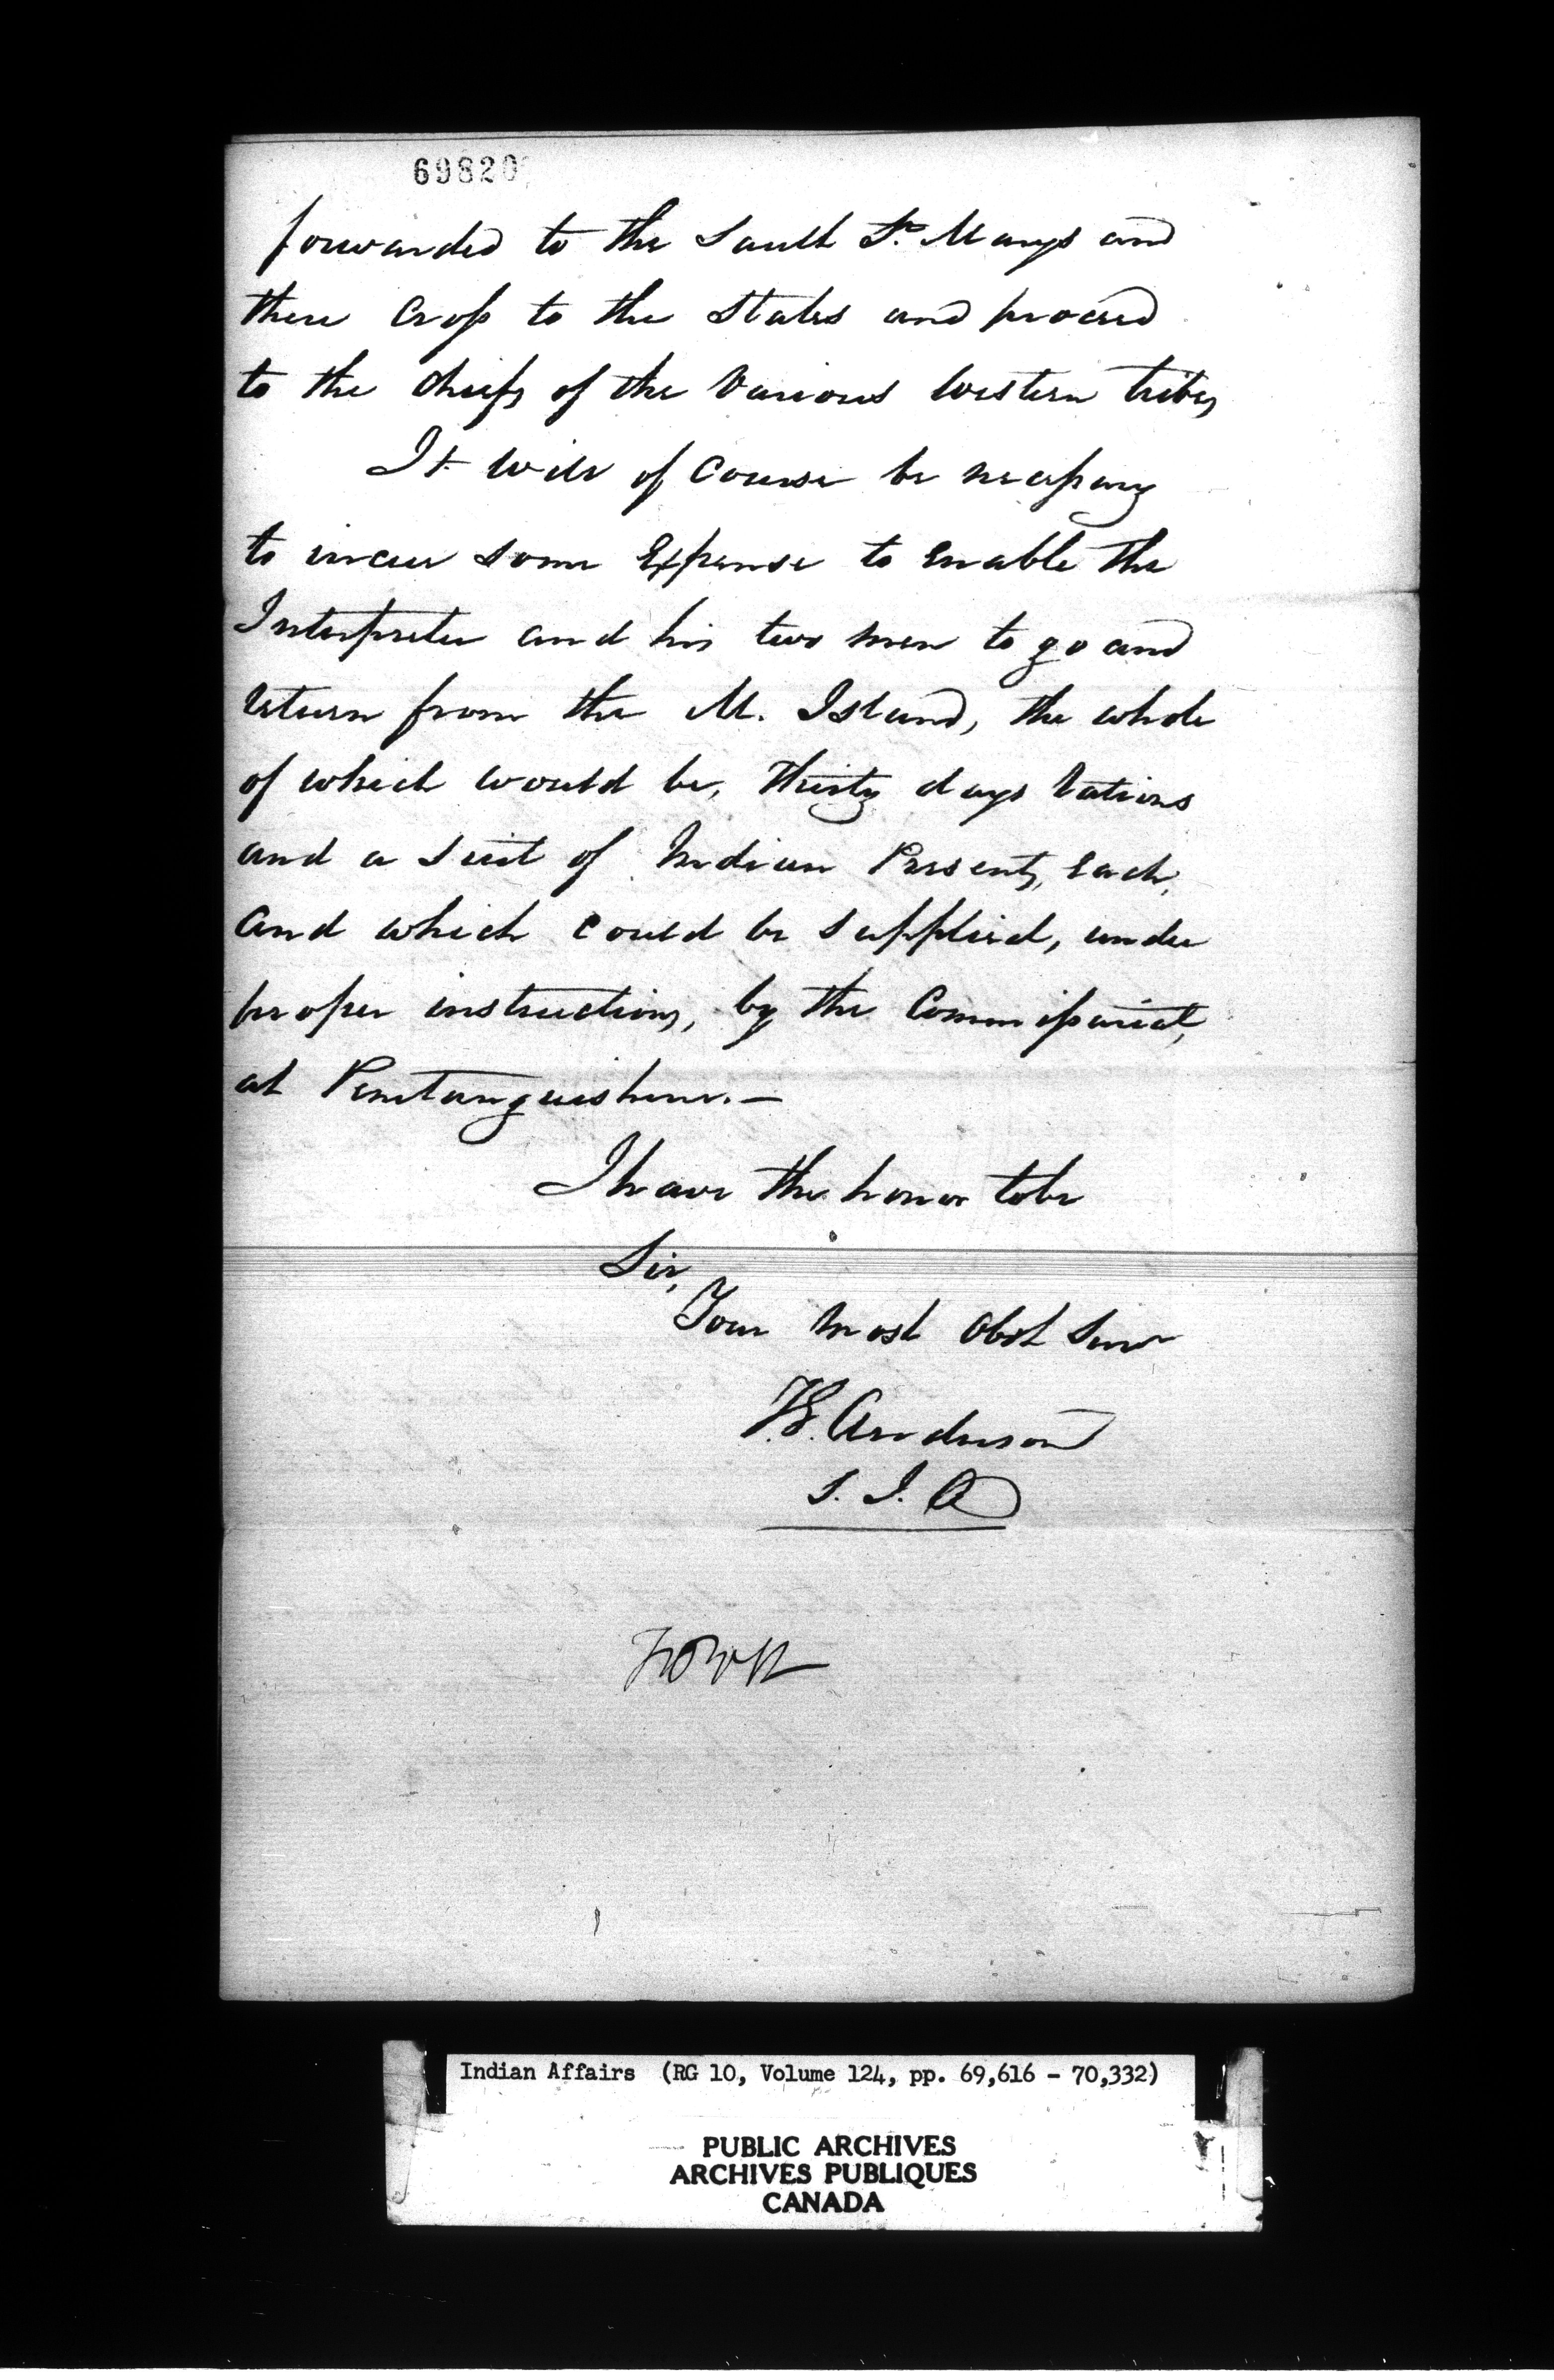 69820
forwarded to the Sault St. Marys and
there cross to the States and proceed
to the chiefs of the Various Western tribes
It will of Course be necessary
to incur some Expense to Enable the
Interpreter and his two men to go and
return from the M. Island, the whole
of which would be, thirty days rations
and a suit of Indian Presents, Each,
and which could be supplied, under
proper instructions, by the Commissariat,
at Penetanguishene. —
I have the honor to be
Sir,
Your most obdt Serv
Anderson
S. I. A
Indian Affairs (RG 10, Volume 124, pp. 69,616 - 70,332)
PUBLIC ARCHIVES
ARCHIVES PUBLIQUES
CANADA